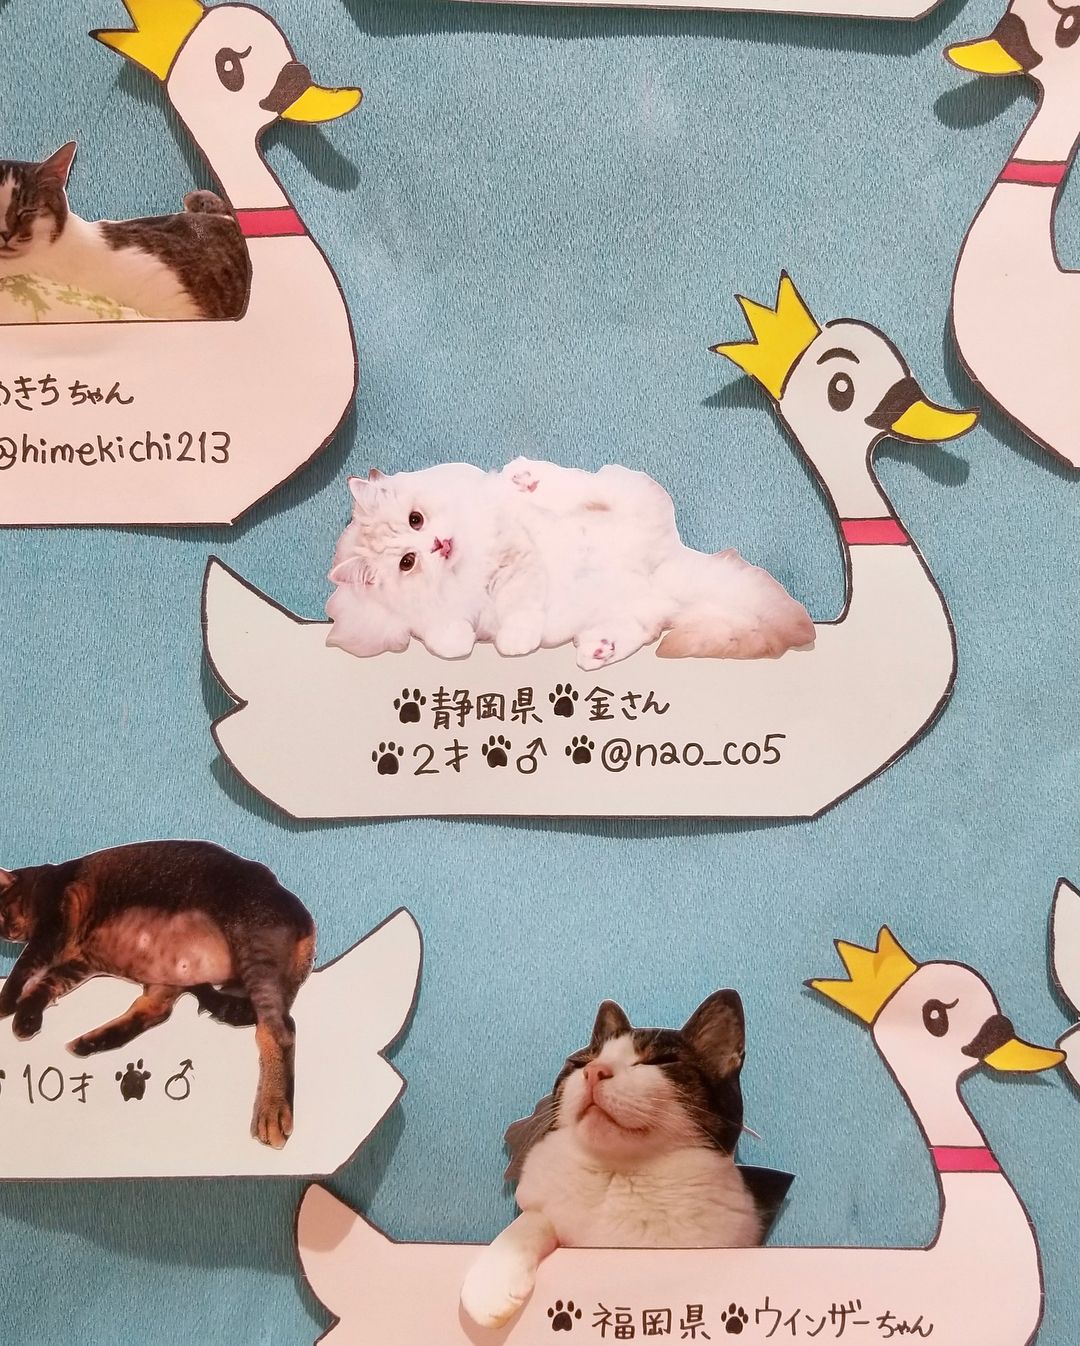 きちちゃん
@himekichi213
静岡県 金さん
2才 ♂ @nao_co5
10才 ♂
福岡県 ウィンザーちゃん